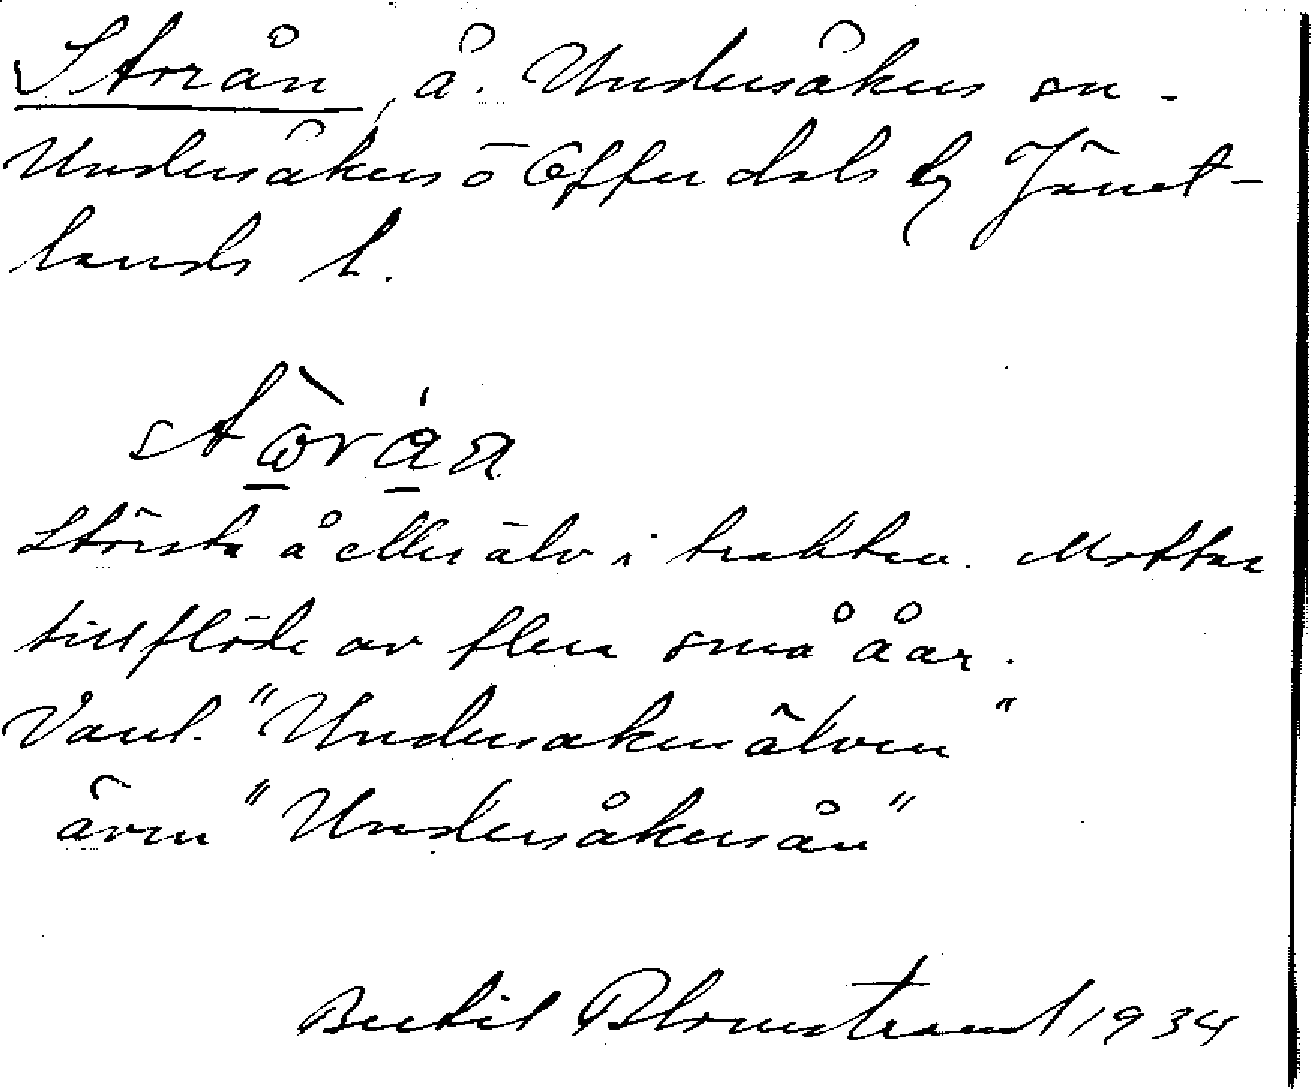 Storån, å. Undersåkers sn.
Undersåkers o Offerdals tg Jämt-
lands l.
Största å eller älv i trakten. Mottar
tillflöde av flera små åar.
Vanl. "Undersåkersälven"
även "Undersåkersån"
Bertil Blomstrand 1934